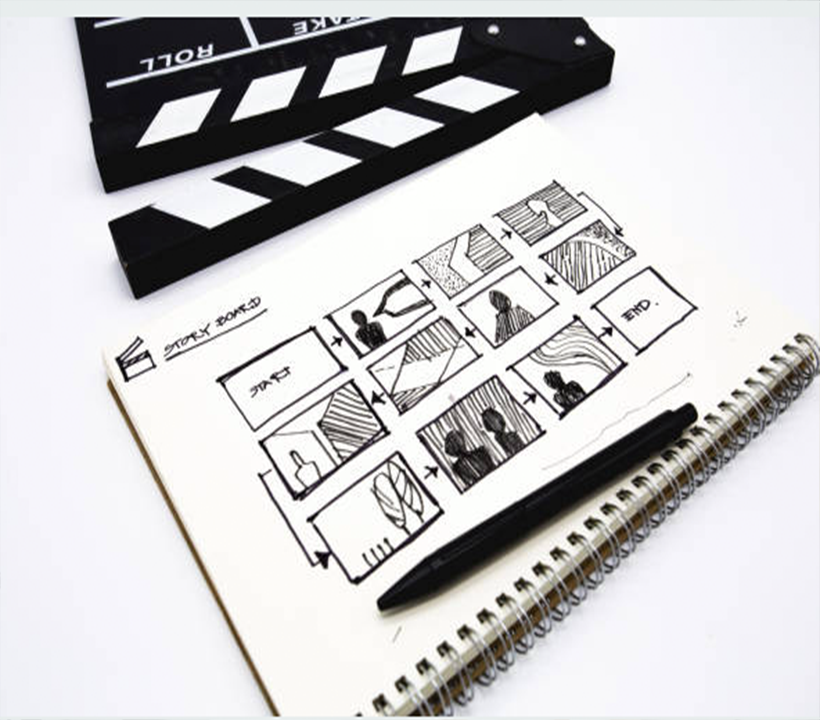 ROLL
TAKE
STORY BOARD
START
END.